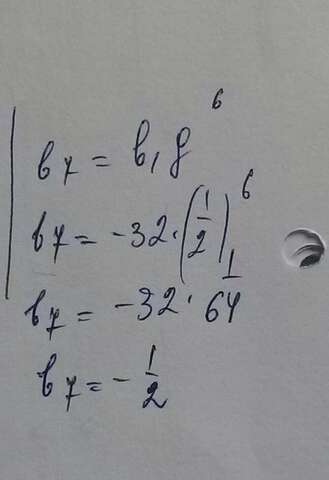 b₇ = b₁q⁶
b₇ = -32·(1/2)⁶
b₇ = -32·1/64
b₇ = -1/2